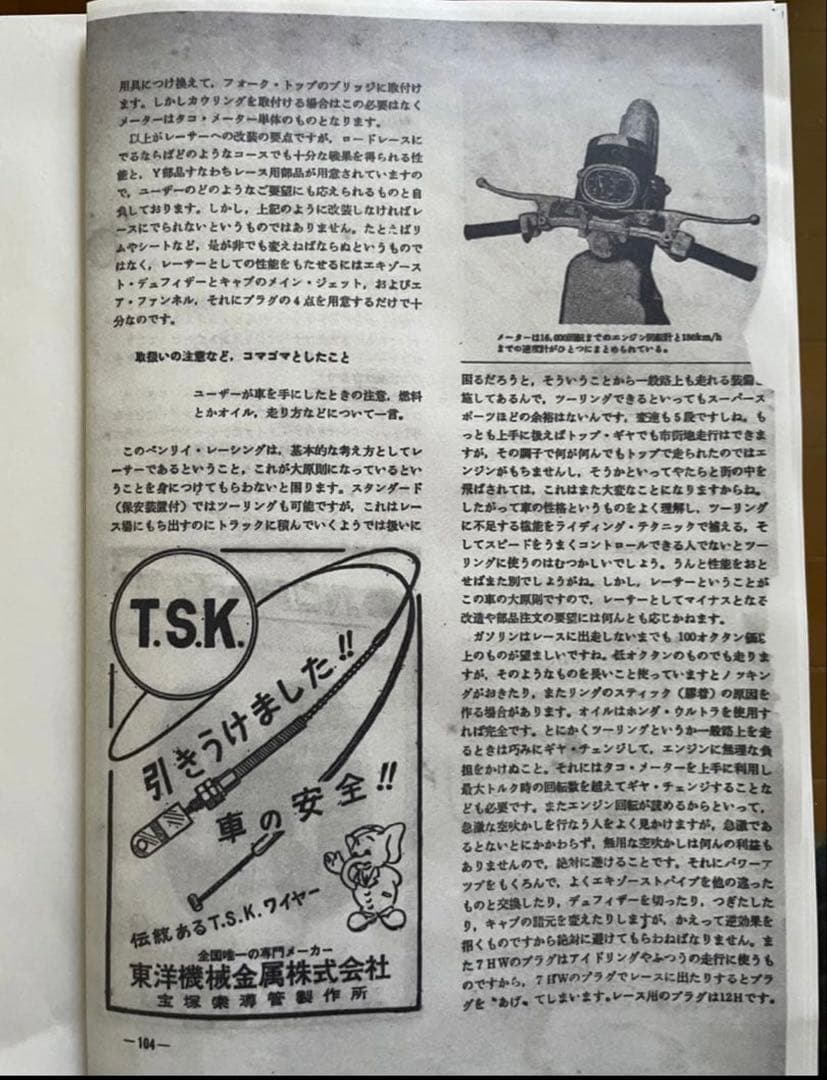 用具につけ換えて，フォーク・トップのブリッジに取付け
ます。しかしカウリングを取付ける場合はこの必要はなく
メーターはタコ・メーター単体のものとなります。
以上がレーサーへの改装の要点ですが，ロードレースに
でるならばどのようなコースでも十分な戦果を得られる性
能と，Y部品すなわちレース用部品が用意されていますの
で，ユーザーのどのようなご要望にも応えられるものと自
負しております。しかし，上記のように改装しなければレ
ースにでられないというものではありません。たとえばリ
ムやシートなど，是が非でも変えねばならぬというもので
はなく，レーサーとしての性能をもたせるにはエキゾース
ト・デュフィザーとキャブのメイン・ジェット，およびエ
ア・ファンネル，それにプラグの4点を用意するだけで十
分なのです。
取扱いの注意など，コマゴマとしたこと
ユーザーが車を手にしたときの注意，燃料
とかオイル，走り方などについて一言。
このベンリイ・レーシングは，基本的な考え方としてレ
ーサーであるということ，これが大原則になっているとい
うことを身につけてもらわないと困ります。スタンダード
（保安装置付）ではツーリングも可能ですが，これはレー
ス場にもち出すのにトラックに積んでいくようでは扱いに
T.S.K.
引きうけました!!
車の安全!!
伝統あるT.S.K.ワイヤー
全国唯一の専門メーカー
東洋機械金属株式会社
宝塚索導管製作所
—104—
メーターは16,000回転までのエンジン回転計と180km/h
までの速度計がひとつにまとめられている。
困るだろうと，そういうことから一般路上も走れる装備
施してあるんで，ツーリングできるといってもスーパース
ポーツほどの余裕はないんです，変速も5段ですしね。も
っとも上手に扱えばトップ・ギヤでも市街地走行はできま
すが，その調子で何が何んでもトップで走られたのではエ
ンジンがもちませんし，そうかといってやたらと街の中を
飛ばされては，これはまた大変なことになりますからね。
したがって車の性格というものをよく理解し，ツーリング
に不足する性能をライディング・テクニックで補える，そ
してスピードをうまくコントロールできる人でないとツー
リングに使うのはむつかしいでしょう。うんと性能をおと
せばまた別でしょうがね。しかし，レーサーということが
この車の大原則ですので，レーサーとしてマイナスとなる
改造や部品注文の要望には何んとも応じかねます。
ガソリンはレースに出走しないまでも 100オクタン価以
上のものが望ましいですね。低オクタンのものでも走りま
すが，そのようなものを長いこと使っていますとノッキン
グがおきたり，またリングのスティック（膠着）の原因を
作る場合があります。オイルはホンダ・ウルトラを使用す
れば完全です。とにかくツーリングというか一般路上を走
るときは巧みにギヤ・チェンジして，エンジンに無理な負
担をかけぬこと。それにはタコ・メーターを上手に利用し
最大トルク時の回転数を越えてギヤ・チェンジすることな
ども必要です。またエンジン回転が読めるからといって，
急激な空吹かしを行なう人をよく見かけますが，急激であ
るとないとにかかわらず，無用な空吹かしは何んの利益も
ありませんので，絶対に避けることです。それにパワーア
ップをもくろんで，よくエキゾーストパイプを他の違った
ものと交換したり，デュフィザーを切ったり，つぎたした
り，キャブの諸元を変えたりしますが，かえって逆効果を
招くものですから絶対に避けてもらわねばなりません。ま
た7HWのプラグはアイドリングやふつうの走行に使うも
のですから，7HWのプラグでレースに出たりするとプラ
グを“あげ”てしまいます。レース用のプラグは12Hです。